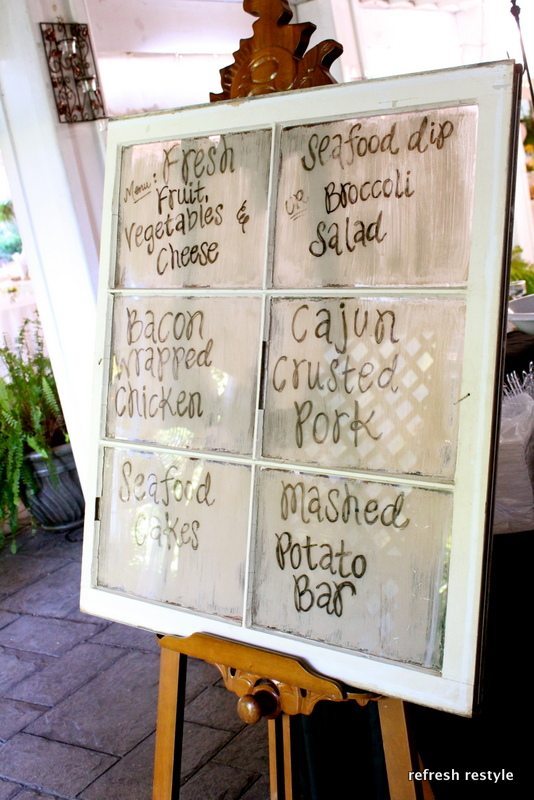 Menu: Fresh
Fruit,
vegetables &
Cheese
Seafood dip
OR Broccoli
Salad
Bacon
wrapped
Chicken
Cajun
Crusted
Pork
Seafood
Cakes
Mashed
Potato
Bar
refresh restyle